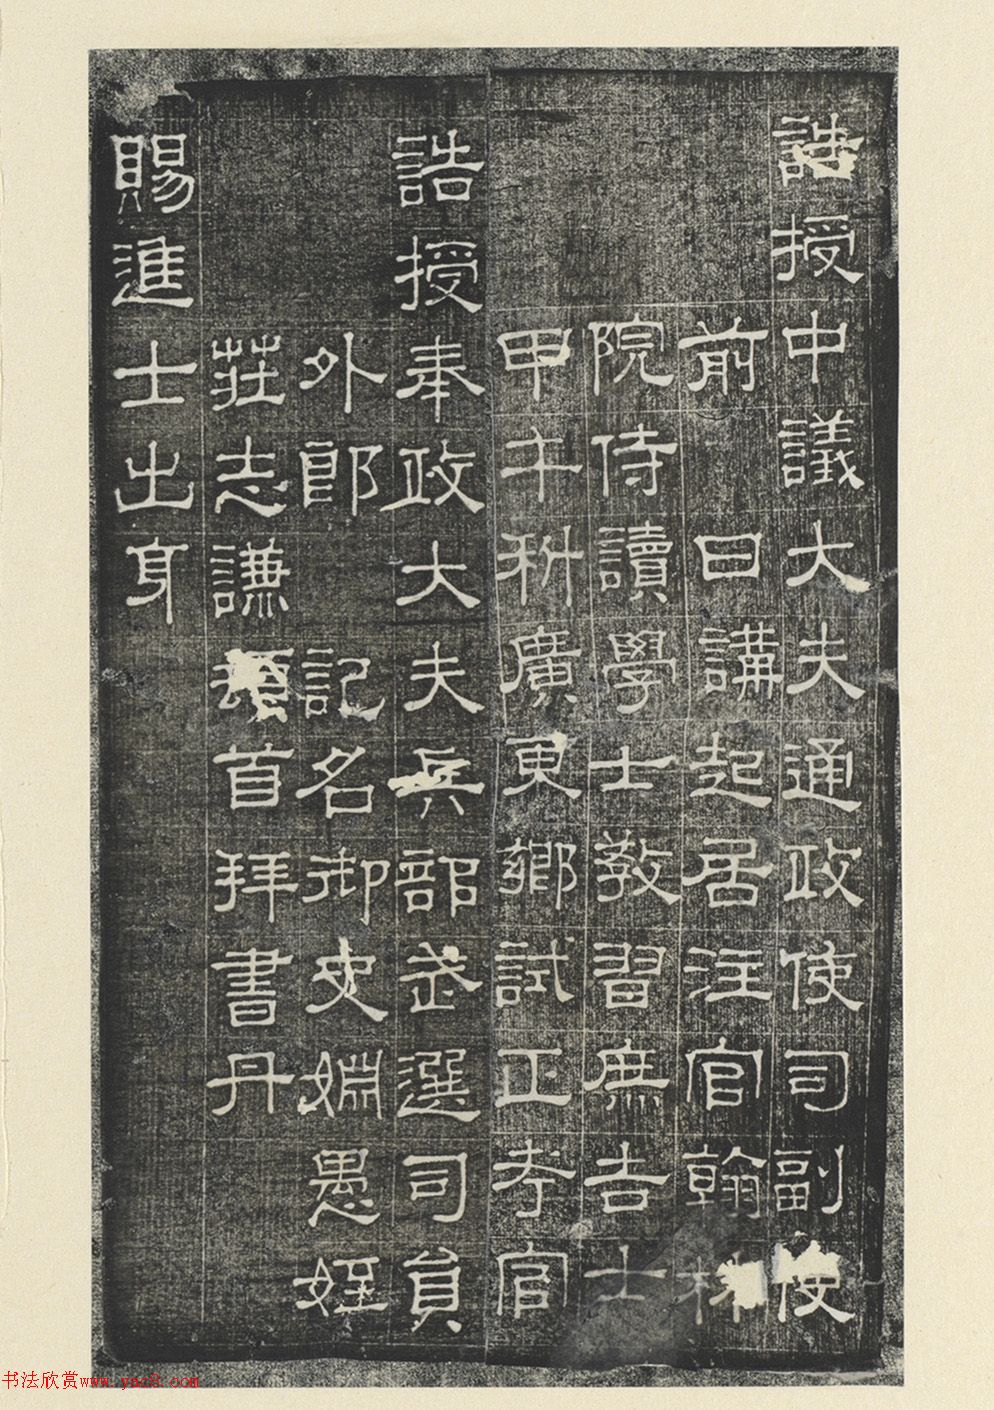 誥授中議大夫通政使司副使
前 日講起居注官翰林
院侍讀學士教習庶吉士
甲午科廣東鄉試正考官
誥授奉政大夫兵部武選司員
外郎 記名御史姻愚姪
莊志謙頓首拜書丹
賜進士出身
书法欣赏www.yac8.com